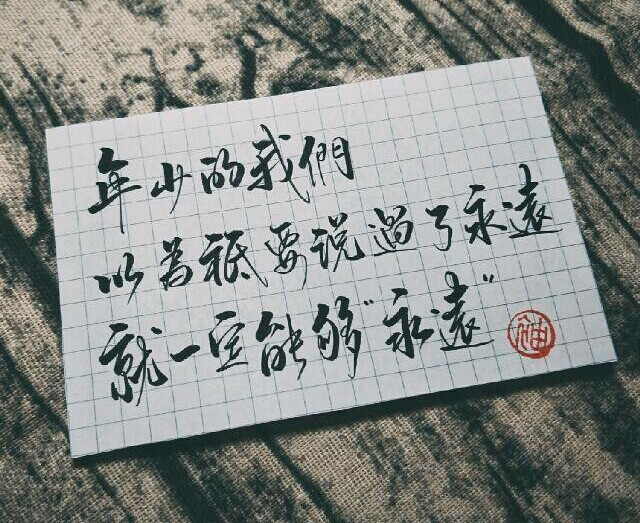 年少的我們
以為祗要説過了永遠
就一定能够"永遠"